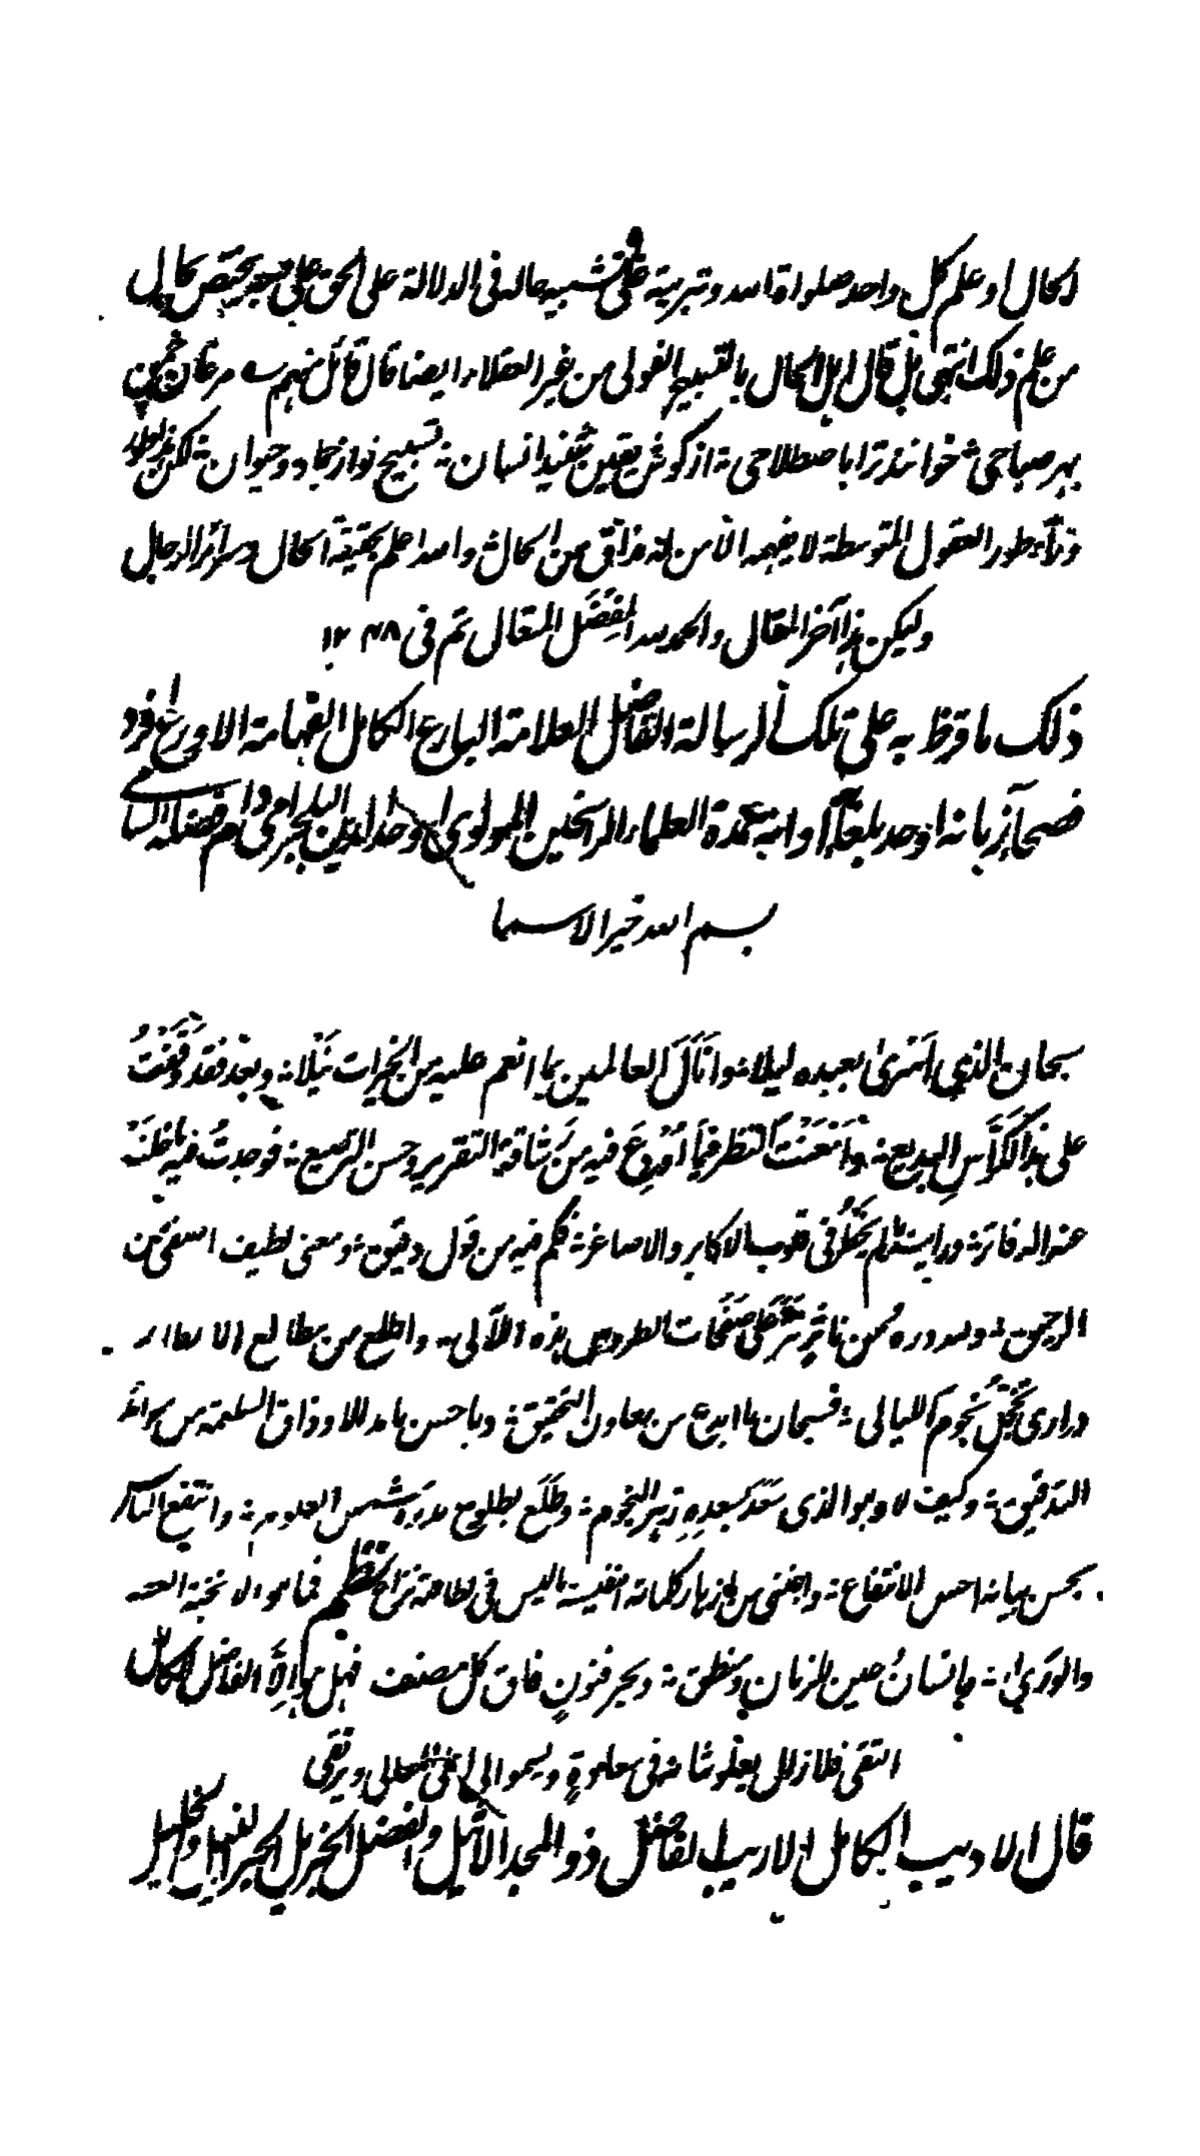 الحال وعلم كل واحد صلواة الله وتبرية على تشبيه حاله فى الدلالة على الحق على وجه يختص بحاله
من علم ذلك انتهى بل قال اهل الحال بالتسبيح القولى من غير العقلاء ايضا قال قائل منهم مرغان چمن
بهر صباحى خوانند ترا با صطلاحى از كو ش يقين شنيد انسان تسبيح تو از جماد وحيوان لكن هذا طور
وراء طور العقول المتوسطة لا يفهمه الا من له مذاق من الحال والله اعلم بحقيقة الحال وسرائر الرجال
وليكن هذا آخر المقال والحمد لله المفضل المتعال تم فى ١٢٤٨
ذلك ما قرظ به على تلك الرسالة الفاضل العلامة البارع الكامل الفهامة الاورع افرد
فصحاء زمانه اوحد بلغاء اوانه عمدة العلماء الراسخين المولوى اوحد الدين البلجرامى دام فضله السامى
بسم الله خير الاسما
سبحان الذي اسرى بعبده ليلا وانال العالمين بما انعم عليه من الخيرات نيلا وبعد فقد وقفت
على هذا الكراس البديع وامعنت النظر فيما اودع فيه من رشاقة التقرير وحسن الترصيع فوجدت فيه ما خلت
عنه الدفاتر ورايت ما لم يخطر فى قلوب الاكابر والاصاغر فكم فيه من قول دقيق ومعنى لطيف اصفى من
الرحيق ولله دره من ناثر نثر على صفحات الطروس هذه اللآلى واطلع من مطالع
درارى تخجل نجوم الليالى فسبحان ما ابدع من معاون التحقيق وما احسن ما مد للاوذاق السليمة من موائد
التدقيق وكيف لا وهو الذى سعد بسعده زهر النجوم وطلع بطلوع بدره شمس العلوم وانتفع الناس
بحسن بيانه احسن الانتفاع واجتنى من ازهار كلماته النفيسة ما ليس فى لطافته نزاع نظم فما هو الا نخبة
والورى ما انسان عين الزمان ومنطق وبحر فنون فاق كل مصنف فهل هو الا الفاضل الكامل
التقى فلا زال يعلو شانه فى معلوة ويسموا الى اعلى المعالى ويرتقى
قال الاديب الكامل الاريب الفاضل ذو المجد الاثيل والفضل الجزيل الحبر النبيل والخليل